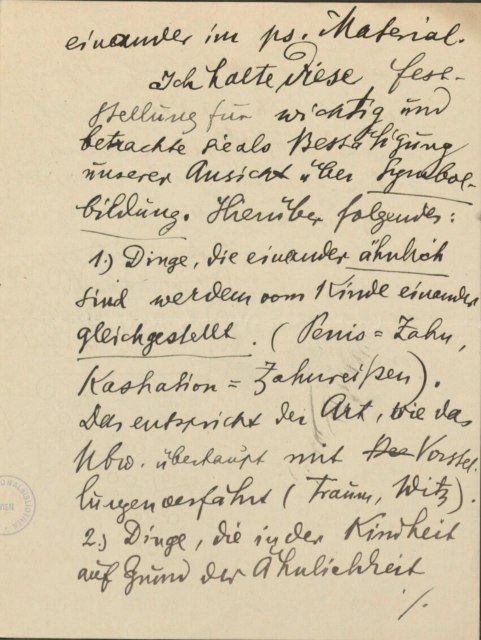 einander im ps. Material.
Ich halte diese Fest-
stellung für wichtig und
betrachte sie als Bestätigung
unserer Ansicht über Symbol-
bildung. Hierüber folgendes:
1.) Dinge, die einander ähnlich
sind werden vom Kinde einander
gleichgestellt. (Penis = Zahn,
Kastration = Zahnreißen).
Das entspricht der Art, wie das
Ubw. überhaupt mit Vorstel-
lungen verfährt (Traum, Witz).
2.) Dinge, die in der Kindheit
auf Grund der Ähnlichkeit
./.